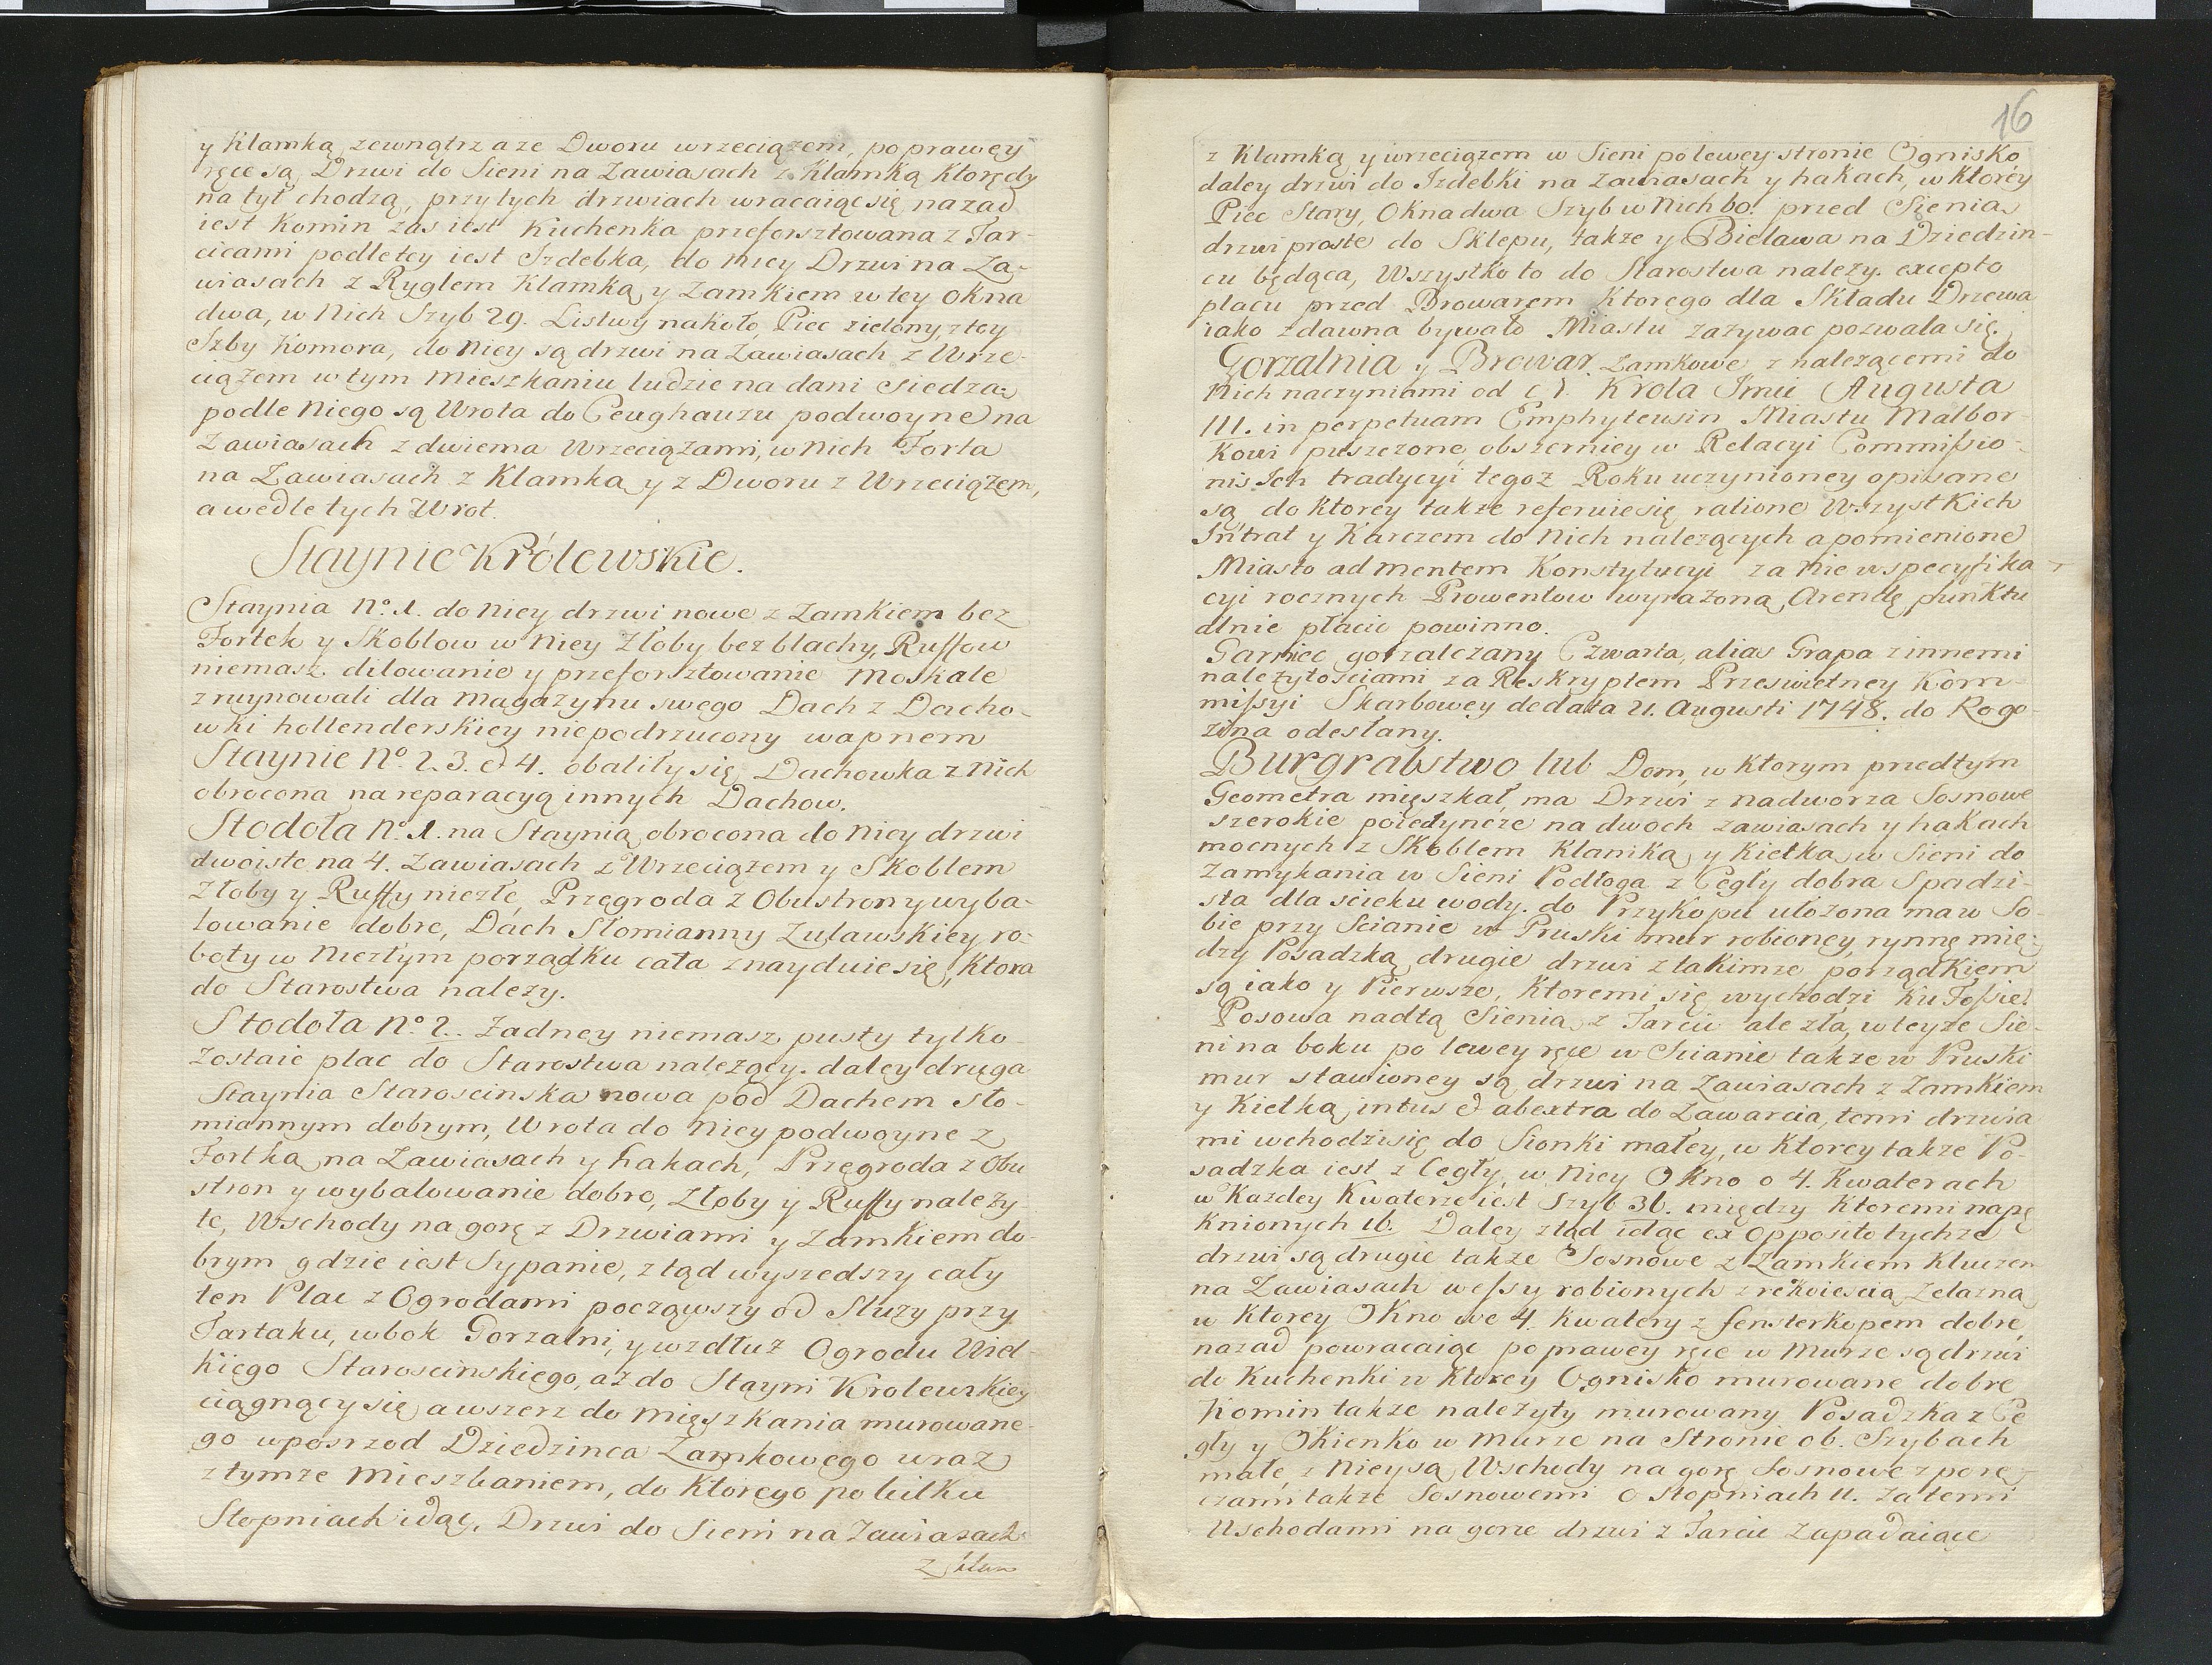 y Klamką zewnątrz a ze Dworu wrzeciązem, po prawey
ręce są Drzwi do Sieni na Zawiasach z Klamką Ktorędy
na tył chodzą, przy tych drzwiach wracaiąc się nazad
iest Komin zas iest Kuchenka przeforsztowana z Tar-
cicami podle tey iest Izdebka, do niey Drzwi na Za-
wiasach z Ryglem Klamką y Zamkiem w tey okna
dwa, w Nich Szyb 29. Listwy nakoło, Piec zielony, z tey
Izby Komora, do Niey są drzwi na Zawiasach z Wrze-
ciązem w tym Mieszkaniu ludzie na dani siedzą;
podle Niego są Wrota do Ceughauzu podwoyne na
Zawiasach z dwiema Wrzeciązami, w Nich Forta
na Zawiasach z Klamką y z Dworu z Wrzeciązem,
a wedle tych Wrot.
Staynie Królewskie.
Staynia No. 1. do Niey drzwi nowe z Zamkiem bez
Fortek y Skoblow w Niey Złoby bez blachy, Ruffow
niemasz. dilowanie y przeforsztowanie Moskale
zruynowali dla Magazynu swego Dach z Dacho-
wki hollenderskiey niepodrzucony wapnem
Staynie No. 2. 3. & 4. obaliły się, Dachowka z Nich
obrocona na reparacyą innych Dachow.
Stodoła No. 1. na Staynią obrocona do Niey drzwi
dwoiste na 4. Zawiasach z Wrzeciązem y Skoblem
Złoby y Ruffy niezłe, Przegroda z Obustron y wyba-
lowanie dobre, Dach Słomianny Zuławskiey ro-
boty w Niezłym porządku cała znayduie się, Ktora
do Starostwa nalezy.
Stodoła No. 2. Zadney niemasz, pusty tylko
zostaie plac do Starostwa nalezący. daley druga
Staynia Staroscinska nowa pod Dachem Sło-
miannym dobrym, Wrota do Niey podwoyne z
Fortką na Zawiasach y hakach, Przegroda z Obu
stron y wybalowanie dobre, Złoby y Ruffy nalezy-
te, Wschody na gorę z Drzwiami y Zamkiem do-
brym gdzie iest Sypanie, ztąd wyszedszy cały
ten Plac z Ogrodami począwszy od Sluzy przy
Tartaku, w bok Gorzalni, y wzdłuz Ogrodu Wiel-
kiego Staroscinskiego, az do Stayni Krolewskiey
ciągnący się a wszerz do Mięszkania murowane-
go wposrzod Dziedzinca Zamkowego wraz
z tymze Mieszkaniem, do Ktorego po kilku
Stopniach idąc, Drzwi do Sieni na Zawiasach
16
z Klamką y wrzeciązem w Sieni po lewey stronie Ognisko
daley drzwi do Izdebki na zawiasach y hakach, w Ktorey
Piec Stary, Okna dwa Szyb w Nich 60. przed Sienią
drzwi proste do Sklepu, takze y Bielawa na Dziedzin-
cu będąca, Wszystko to do Starostwa nalezy. excepto
placu przed Browarem Ktorego dla Składu Drzewa
iako zdawna bywało Miastu zazywac pozwala się.
Gorzalnia y Browar Zamkowe z nalezącemi do
Nich naczyniami od Krola Imci Augusta
III. in perpetuam Emphyteusin Miastu Malbor-
kowi puszczone, obszerniey w Relacyi Commissio-
nis Ich tradycyi tegoz Roku uczynioney opisane
są do Ktorey takze referuie się ratione Wszystkich
Intrat y Karczem do Nich nalezących a pomienione
Miasto ad mentem Konstytucyi za Nie w specyfika-
cyi rocznych Prowentow wyrazoną Arendę punktu
alnie płacic powinno.
Garniec gorzalczany Czwarta, alias Grapa z innemi
nalezytościami za Reskryptem Przeswietney Kom-
missyi Skarbowey dedata 21. Augusti 1748. do Rogo-
zina odesłany.
Burgrabstwo lub Dom, w Ktorym przedtym
Geometra mięszkał, ma Drzwi z nadworza Sosnowe
szerokie poiedyncze na dwoch zawiasach y hakach
mocnych z Skoblem Klamką y Kietką w Sieni do
Zamykania w Sieni Podłoga z Cegły dobra Spadzi-
sta dla scieku wody. do Przykopu ułozona ma w So-
bie przy Scianie w Pruski mur robioney, rynnę mię-
dzy Posadzką, drugie drzwi z takimze porządkiem
są iako y Pierwsze, Ktoremi się wychodzi Ku Fossie.
Posowa nad tą Sienią z Tarcic ale zła, w teyze Sie-
ni na boku po lewey ręce w Scianie takze w Pruski
mur stawioney są drzwi na Zawiasach z Zamkiem
y Kietką, intus & abextra do Zawarcia, temi drzwia
mi wchodzi się do Sionki małey, w Ktorey takze Po-
sadzka iest z Cegły, w Niey Okno o 4. Kwaterach
w Kazdey Kwaterze iest Szyb 36. między Ktoremi napę
knionych 16. Daley ztąd idąc ex opposito tychze
drzwi są drugie takze Sosnowe z Zamkiem Kluczem
na Zawiasach wessy robionych z rękoieścią Zelazną
w Ktorey Okno we 4. Kwatery z fensterkopem dobre,
nazad powracaiąc po prawey ręce w Murze są drzwi
do Kuchenki w Ktorey Ognisko murowane dobre
Komin takze nalezyty murowany Posadzka z Ce
gły y Okienko w Murze na Stronie o 6. Szybach
małe, z Niey są Wschody na gorę Sosnowe z porę-
czami takze Sosnowemi o Stopniach 11. Za temi
Wschodami na gorze drzwi z Tarcic Zapadaiące